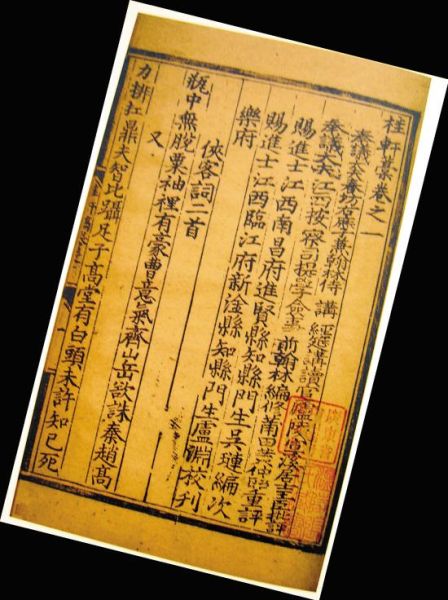 桂軒藁卷之一
奉議大夫春坊右庶子兼翰林侍講經筵講讀官
奉議大夫江西按察司提學僉事前翰林編修莆田黃仲昭重評
賜進士江西南昌府進賢縣知縣門生吳璉編次
賜進士江西臨江府新淦縣知縣門生盧淵校刊
樂府
俠客詞二首
瓶中無脫粟袖裡有豪曹意氣齊山岳欲誅秦趙高
又
力排扛鼎夫智比躡足子高堂有白頭未許知己死